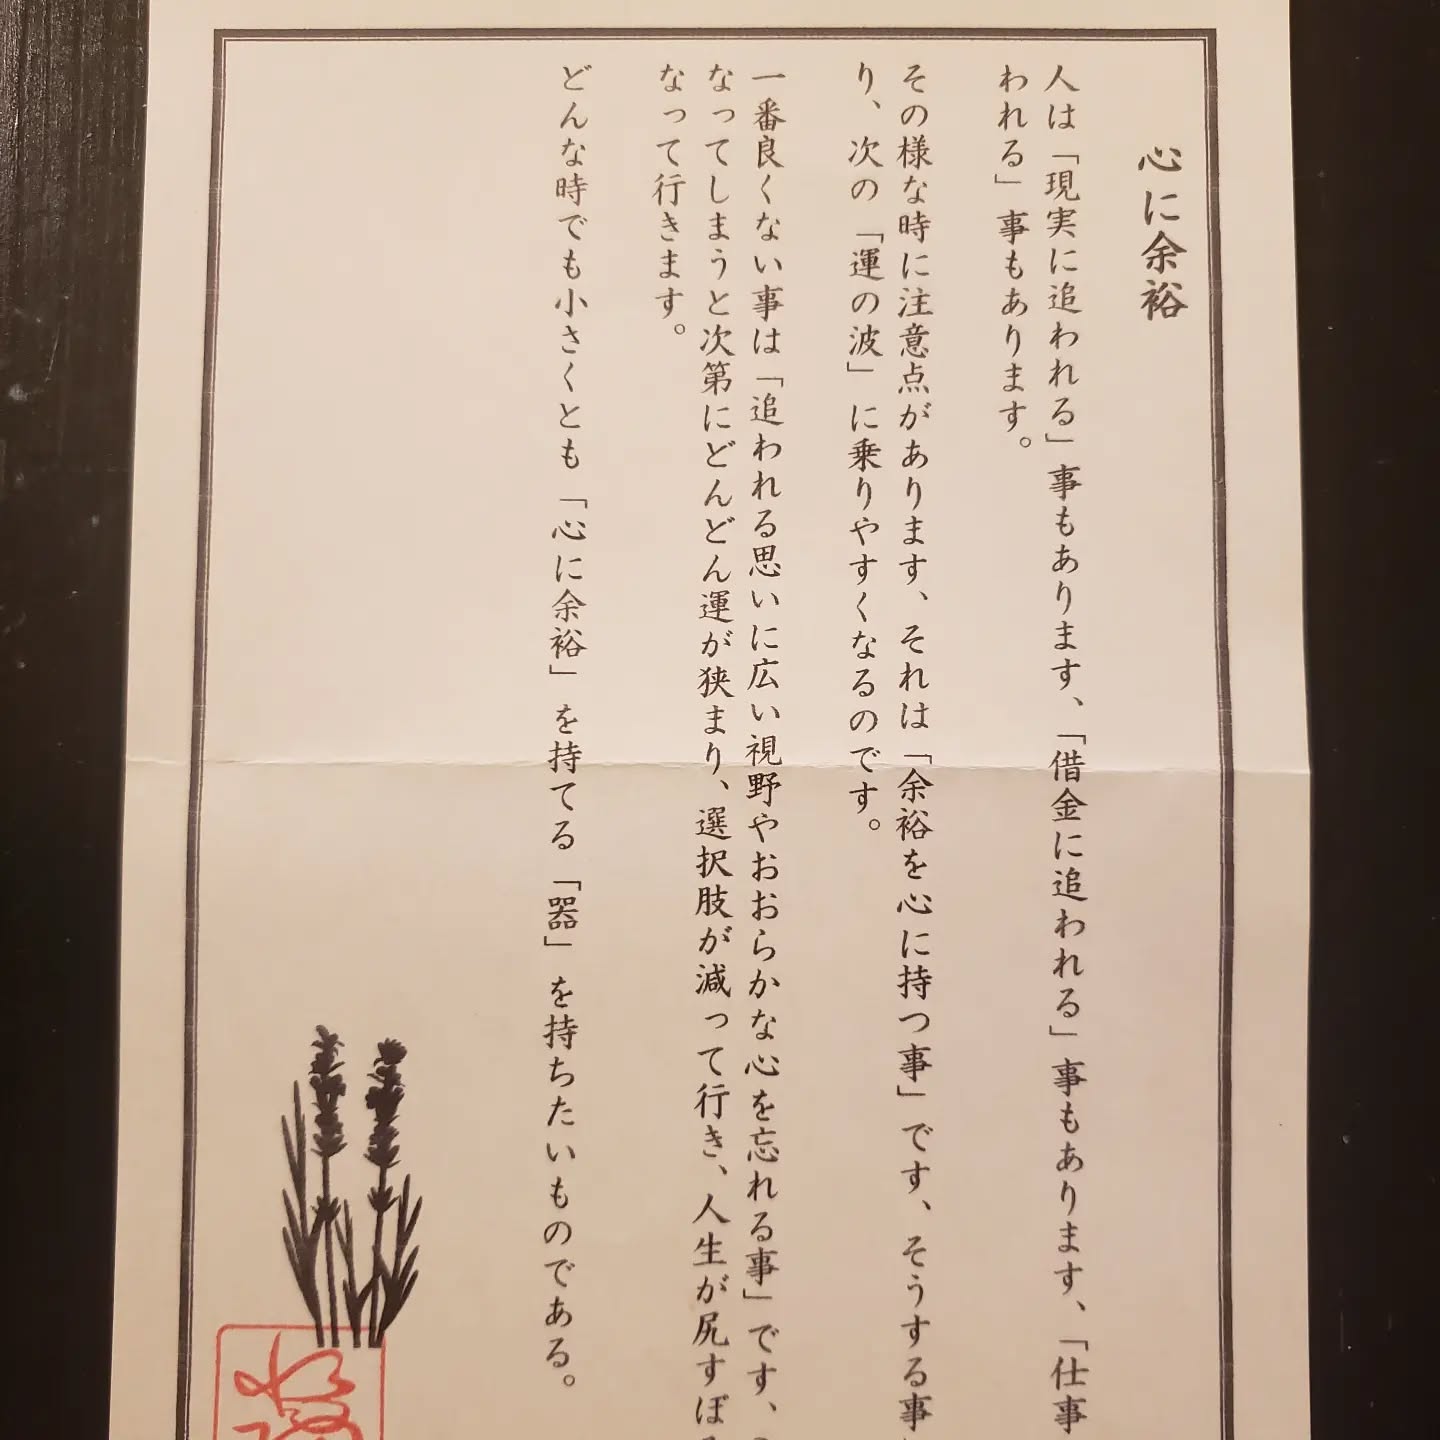 心に余裕
人は「現実に追われる」事もあります、「借金に追われる」事もあります、「仕事
われる」事もあります。
その様な時に注意点があります、それは「余裕を心に持つ事」です、そうする事
り、次の「運の波」に乗りやすくなるのです。
一番良くない事は「追われる思いに広い視野やおおらかな心を忘れる事」です、
なってしまうと次第にどんどん運が狭まり、選択肢が減って行き、人生が尻すぼ
なって行きます。
どんな時でも小さくとも「心に余裕」を持てる「器」を持ちたいものである。